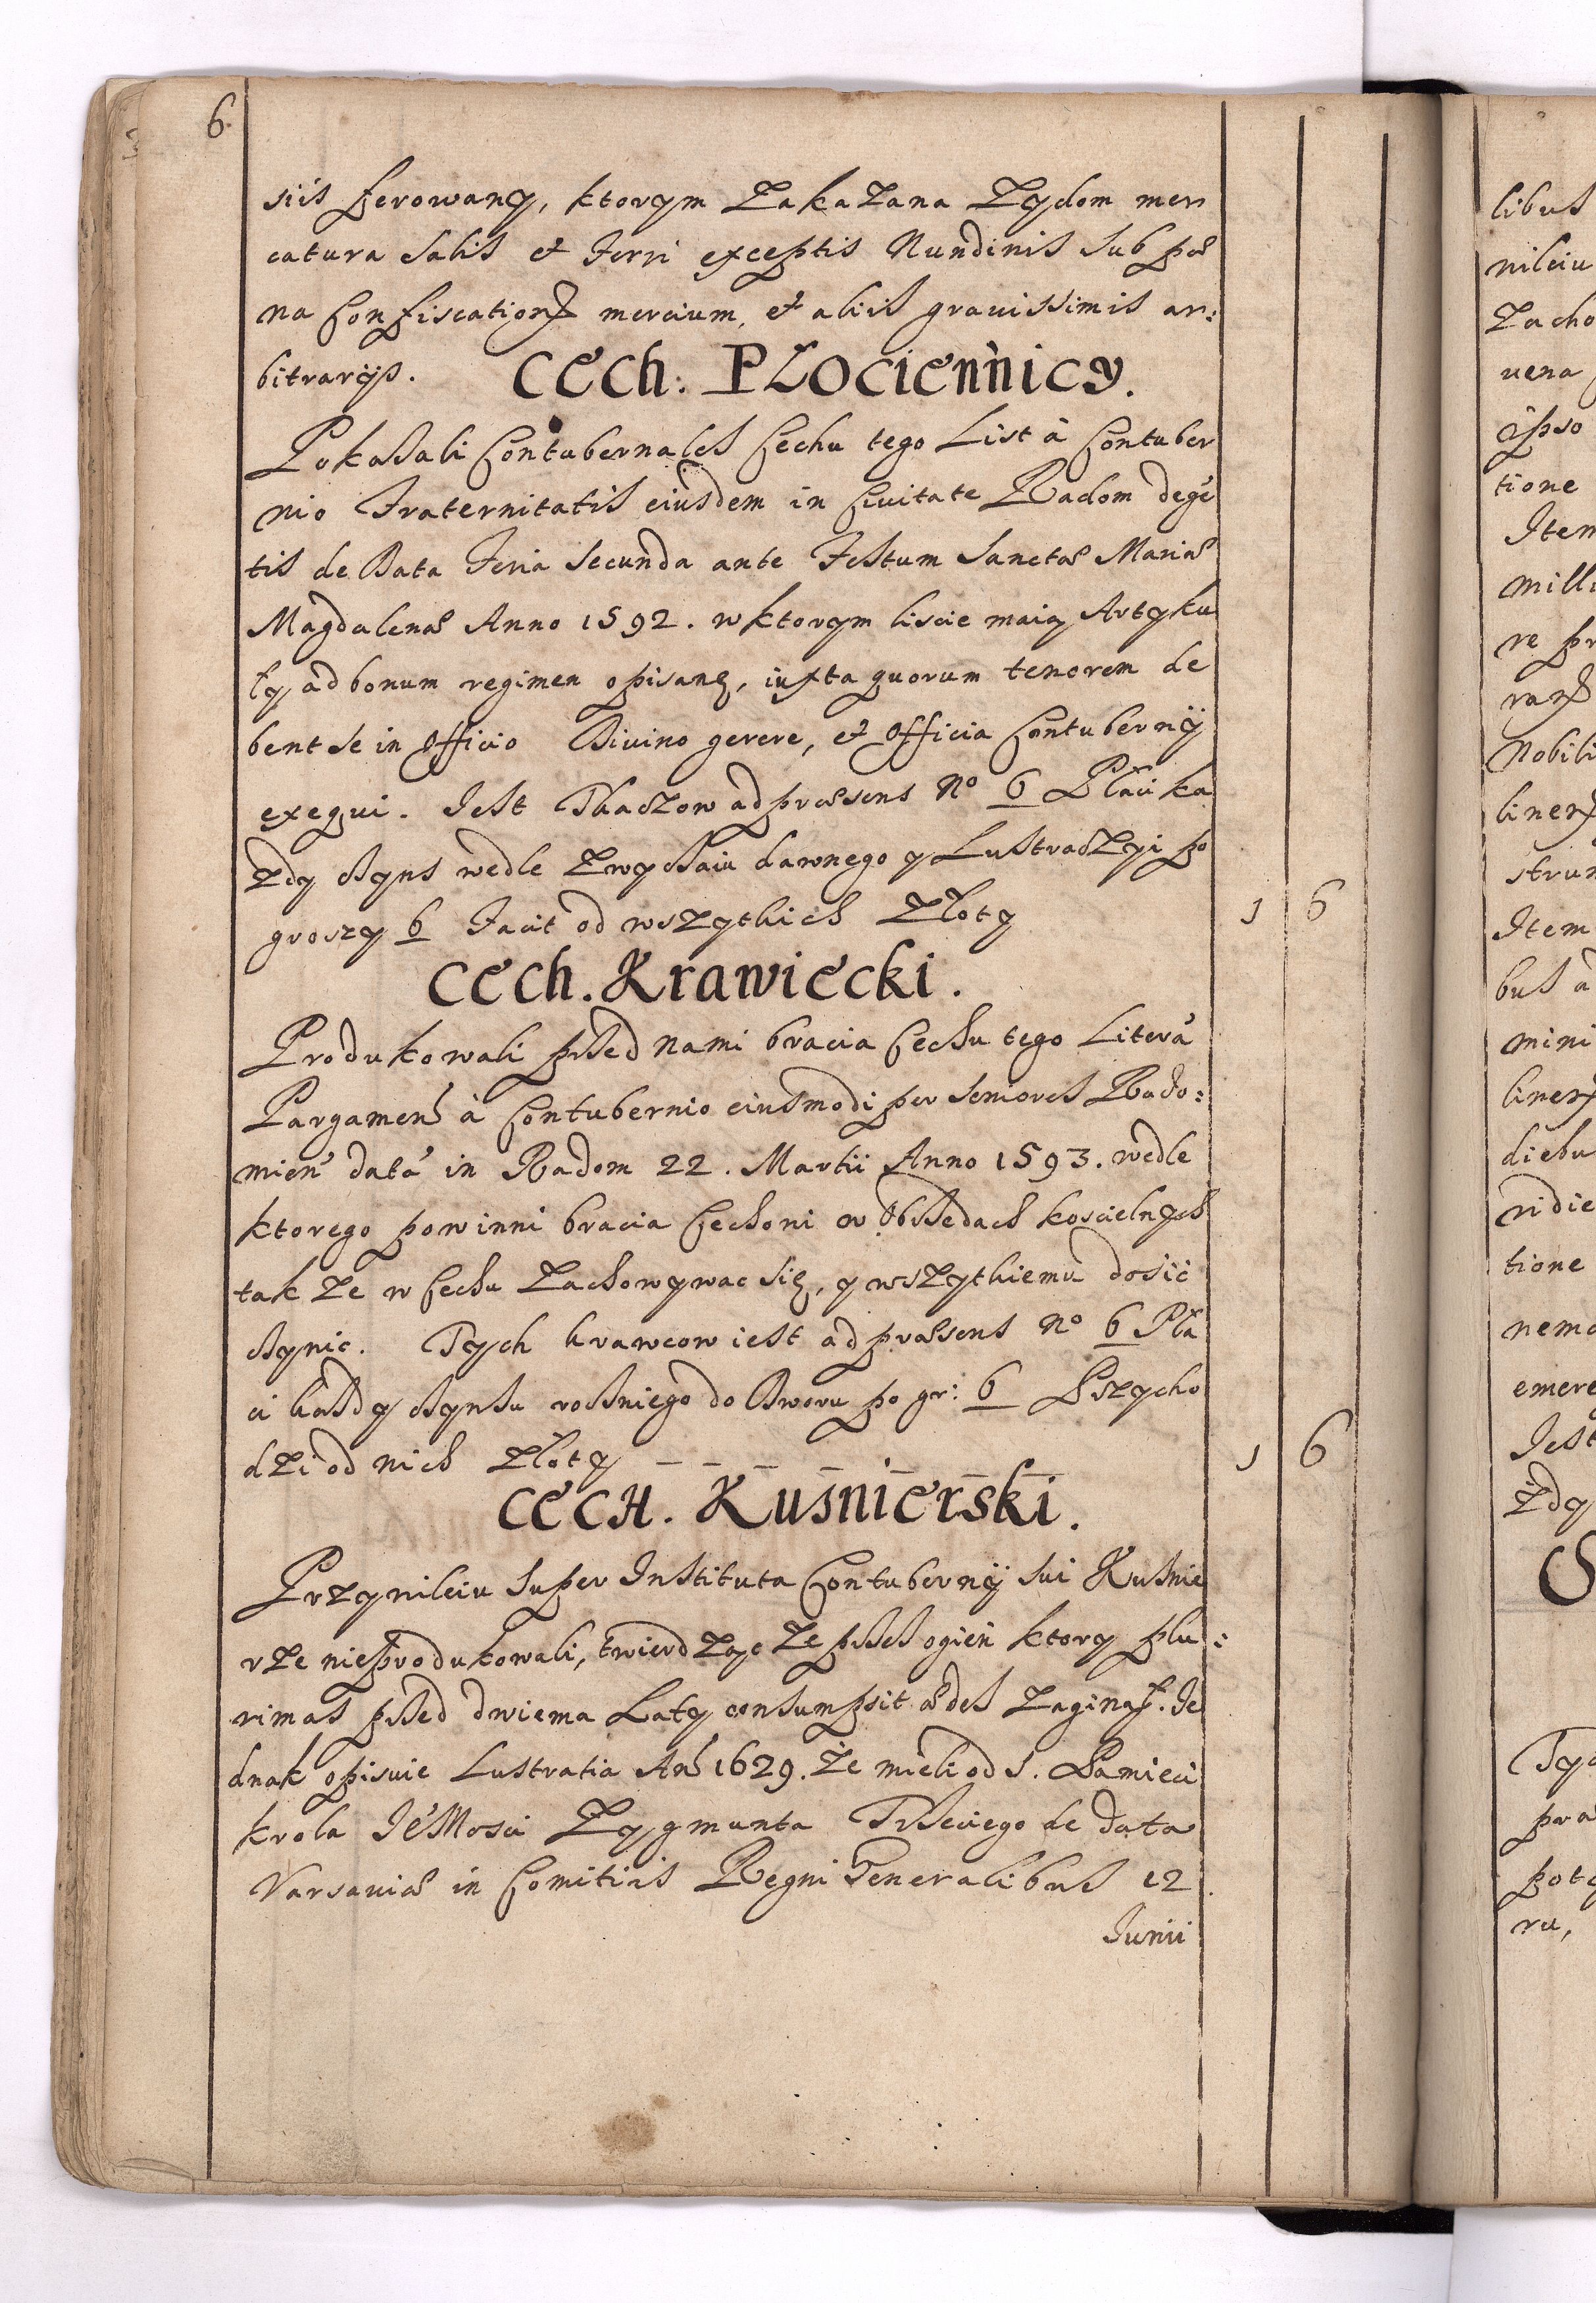 6.
siis ferowany, ktorym zakazana Zydom mer
catura salis et Ferri exceptis Nundinis sub pæ
na Confiscationis mercium, et aliis grauissimis ar:
bitrarijs.
CECh: PŁOCIENNICY.
Pokazali Contubernales Cechu tego List à Contuber
nio Fraternitatis eiusdem in Ciuitate Radom degē
tis de Data Feria Secunda ante Festum Sanctæ Mariæ
Magdalenæ Anno 1592. w ktorym liscie maią Artyku
ły ad bonum regimen opisane, iuxta quorum tenorem de
bent se in Officio Diuino gerere, et Officia Contubernij
exequi. Jest Tkaczow ad præsens No 6 Płaci ka
zdy czyns wedle zwyczaiu dawnego y Lustraczyi po
groszy 6 Facit od wszytkich Złoty 1 6
CECh. Krawiecki.
Produkowali przed nami bracia Cechu tego Literā
Pargamen à Contubernio eiusmodi per seniores Rado:
mien datā in Radom 22. Martii Anno 1593. wedle
ktorego powinni bracia Cechowi w Obrzedach koscielnych
tak ze w Cechu zachowywac się, y wszytkiemu dosic
czynic. Tych krawcow iest ad præsens No 6 Pła
ci kazdy czynszu rocznego do Dworu po gr: 6 Przycho
dzi od nich złoty 1 6
CECH. Kusnierski.
Przywileiu super Instituta Contubernij sui Kusnie
rze nie produkowali, twierdząc ze przez ogien ktory plu:
rimas przed dwiema Laty consumpsit ædes zaginął. Je
dnak opisuie Lustratia An 1629. że mieli od S. Pamieci
krola JeMosci Zygmunta Trzeciego de data
Varsaviæ in Comitiis Regni Generalibus 12
Junii
libus
nileiu
zacho
uena
ipso
tione
Item
mill
re pr
Nobili
Item
bus a
mini
diebu
ridie
tione
nemo
emere
Jest
zdy
pra
ru,